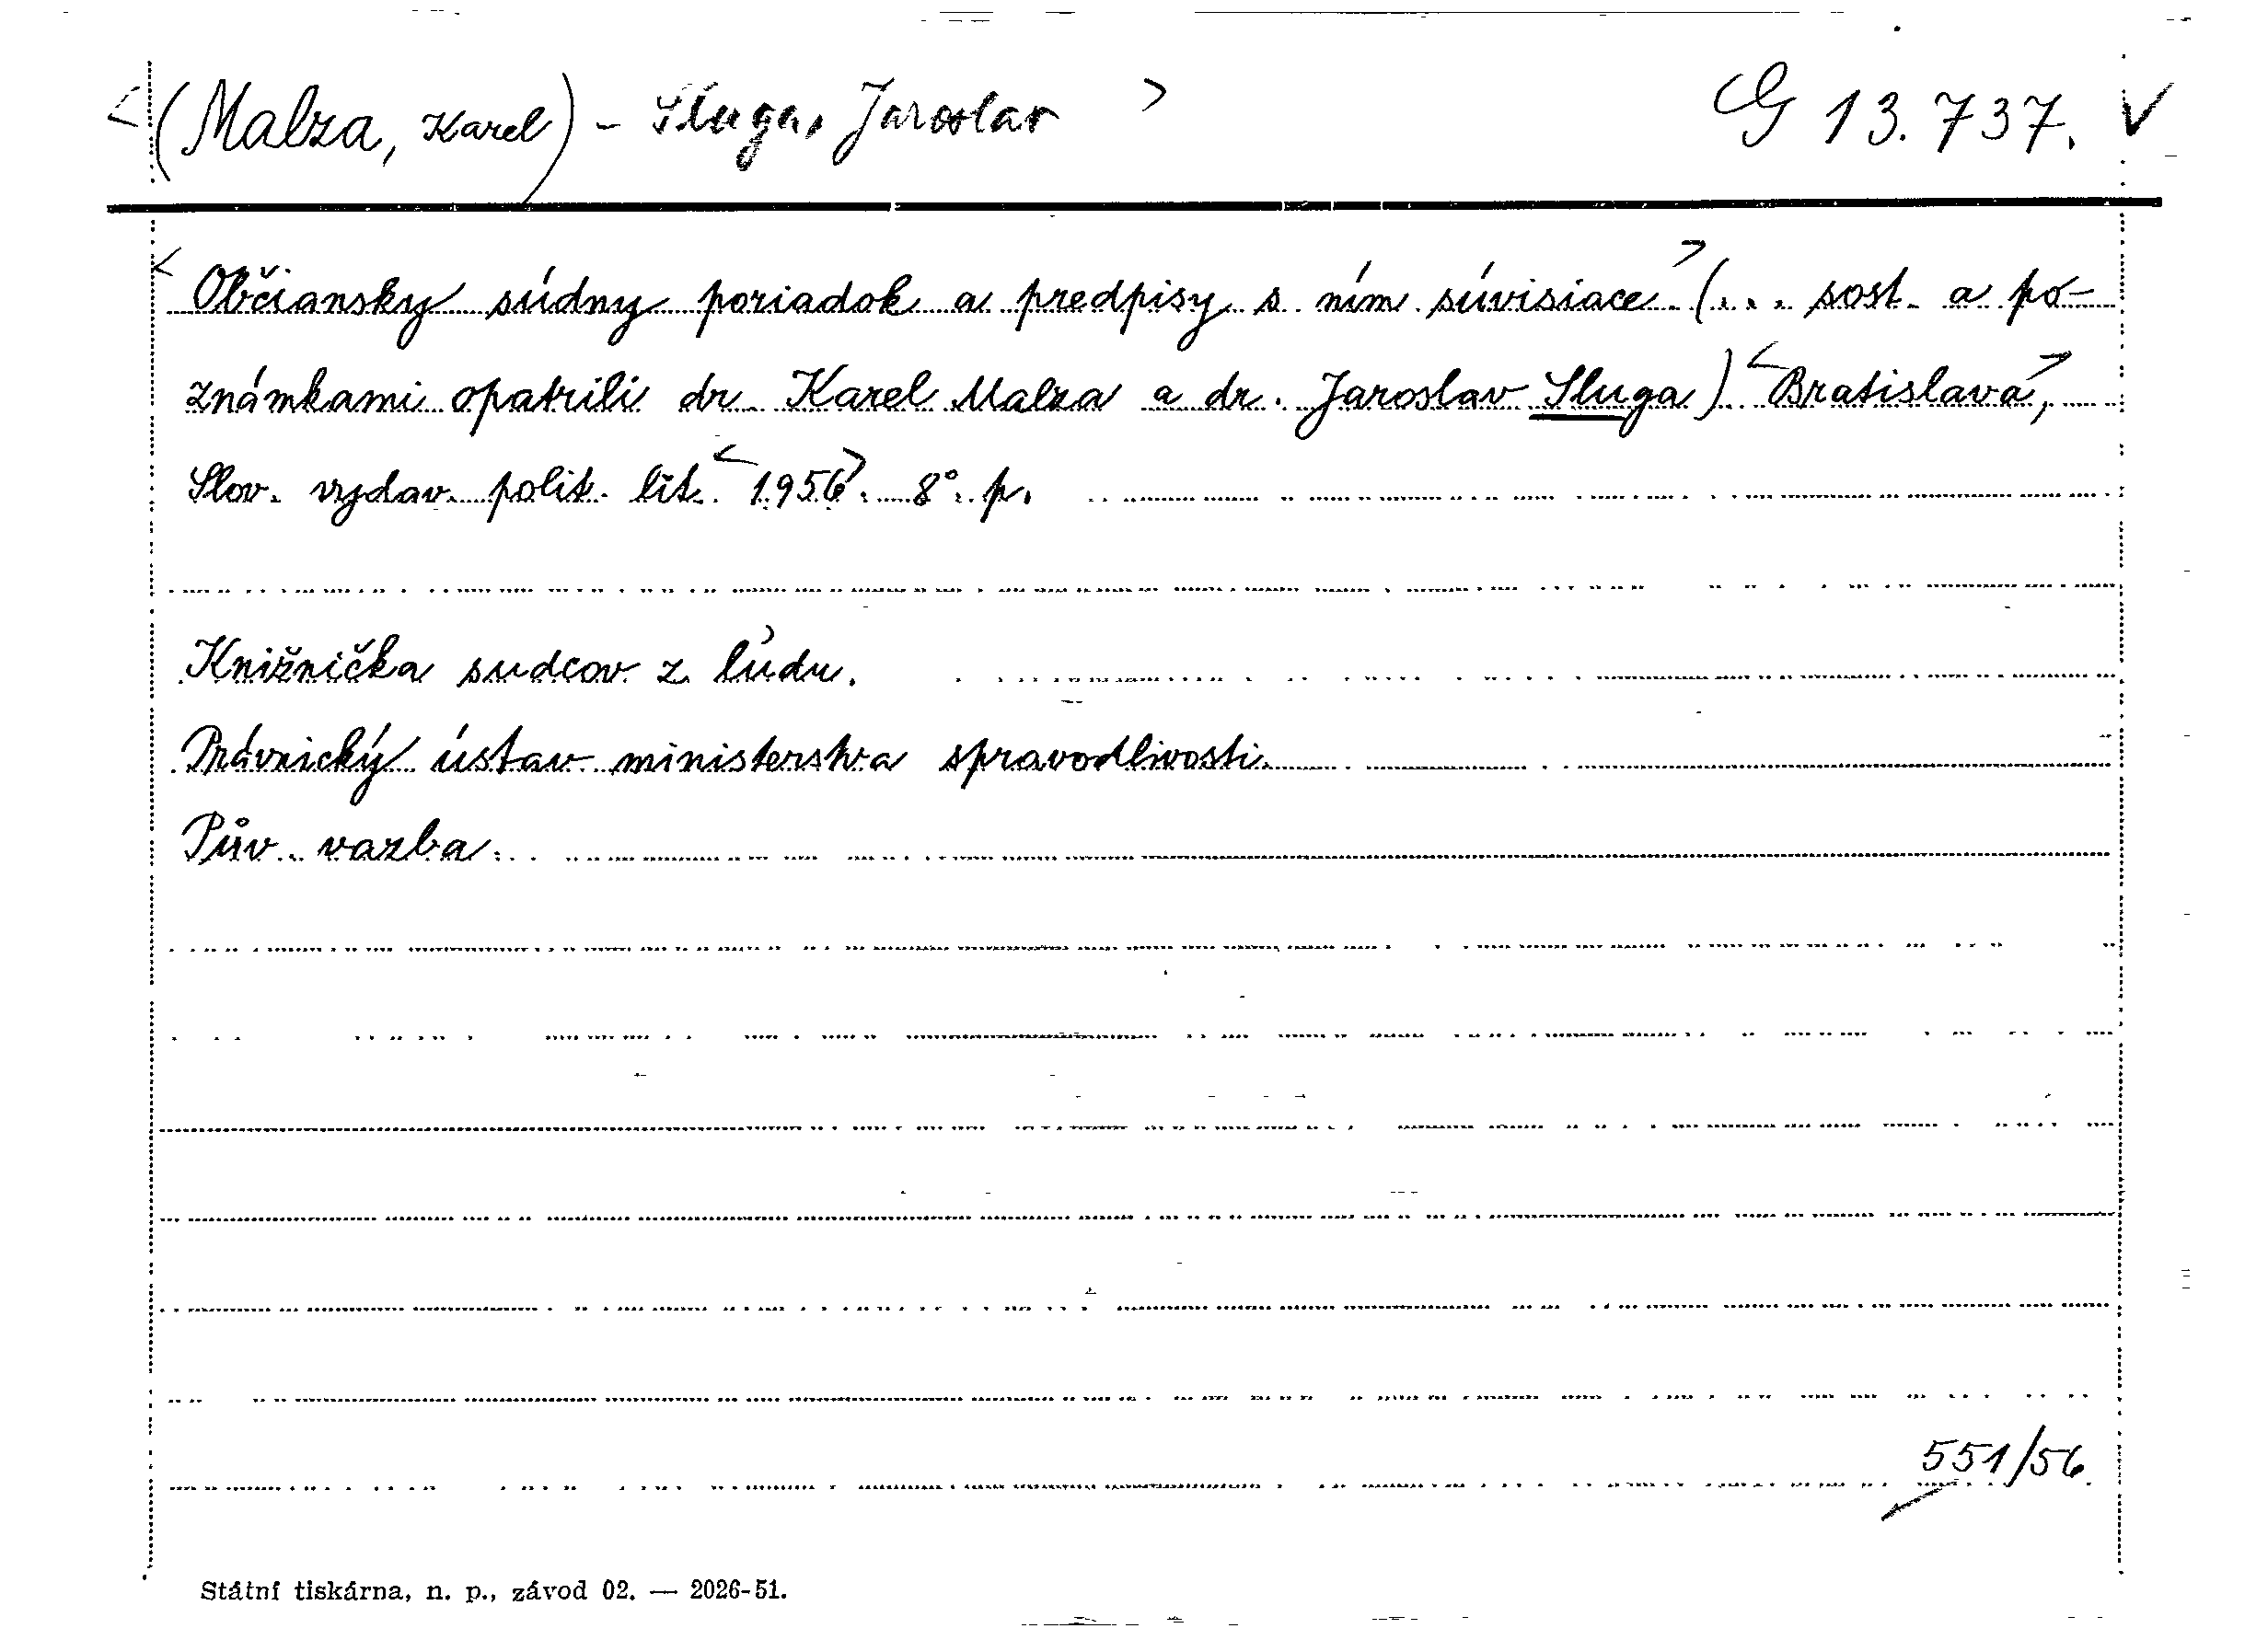 <(Malza, Karel) - Sluga, Jaroslav > G 13.737. V
<Občiansky súdny poriadok a predpisy s ním súvisiace> (... sost. a po-
známkami opatrili dr. Karel Malza a dr. Jaroslav Sluga) <Bratislava>,
Slov. vydav. polit. lit. <1956>. 8°. p.
Knižnička sudcov z ľudu.
Právnický ústav ministerstva spravodlivosti.
Pův. vazba.
551/56
Státní tiskárna, n. p., závod 02. — 2026-51.